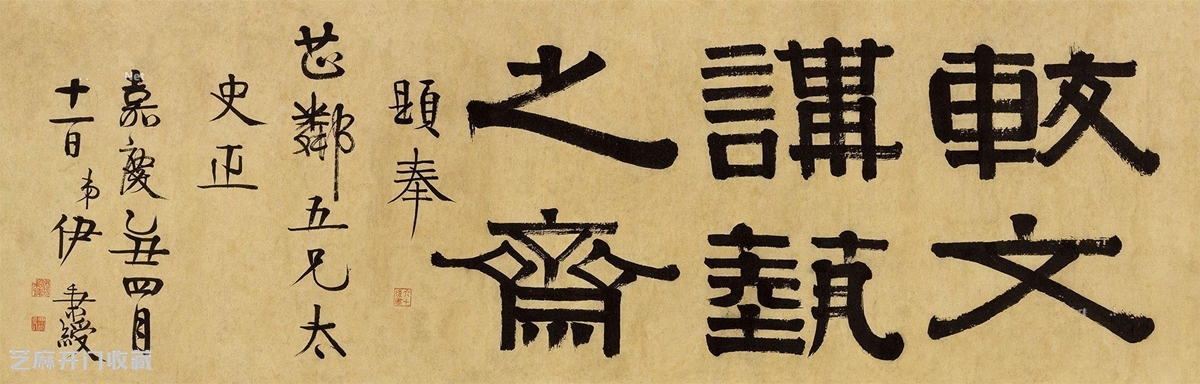 較文
講埶
之齋
題奉
芷鄰五兄太
史正
嘉慶乙丑四月
十一日弟伊秉綬
芝麻开门收藏